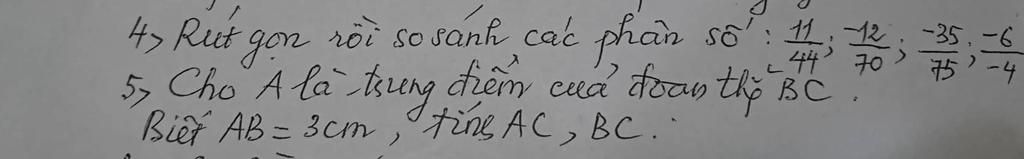 4, Rút gọn rồi so sánh các phân số : 11/44 ; -12/70 ; -35/75 ; -6/-4
5, Cho A là trung điểm của đoan thg BC .
Biết AB = 3cm , tính AC , BC .